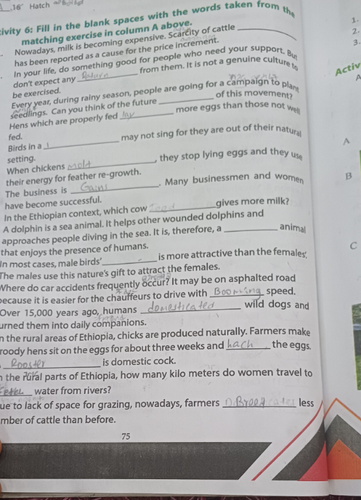 16" Hatch
ivity 6: Fill in the blank spaces with the words taken from the
matching exercise in column A above.
Nowadays, milk is becoming expensive. Scarcity of cattle
has been reported as a cause for the price increment.
In your life, do something good for people who need your support. But
don't expect any from them. It is not a genuine culture to
be exercised.
Every year, during rainy season, people are going for a campaign to plant
seedlings. Can you think of the future of this movement?
Hens which are properly fed lay more eggs than those not well
fed.
Birds in a may not sing for they are out of their natural
setting.
When chickens mold, they stop lying eggs and they use
their energy for feather re-growth.
The business is Gain. Many businessmen and women
have become successful.
In the Ethiopian context, which cow gives more milk?
A dolphin is a sea animal. It helps other wounded dolphins and
approaches people diving in the sea. It is, therefore, a animal
that enjoys the presence of humans.
In most cases, male birds' is more attractive than the females'.
The males use this nature's gift to attract the females.
Where do car accidents frequently occur? It may be on asphalted road
because it is easier for the chauffeurs to drive with Booming speed.
Over 15,000 years ago, humans domesticated wild dogs and
urned them into daily companions.
n the rural areas of Ethiopia, chicks are produced naturally. Farmers make
roody hens sit on the eggs for about three weeks and hach the eggs.
Rooster is domestic cock.
n the rural parts of Ethiopia, how many kilo meters do women travel to
water from rivers?
ue to lack of space for grazing, nowadays, farmers less
mber of cattle than before.
75
1.
2.
3.
Activ
A
A
B
C